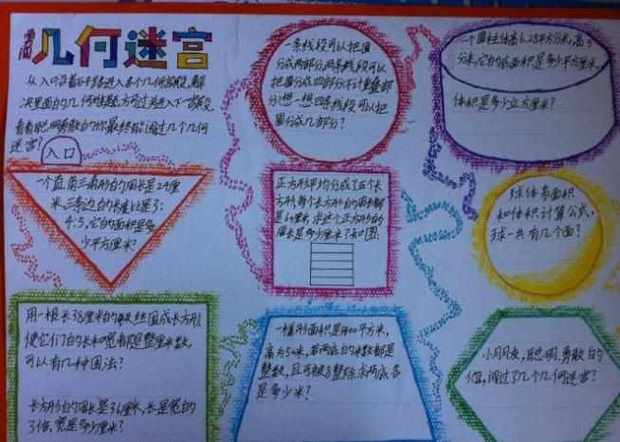 几何迷宫
决里面的几何难题方可进入下一阶段
迷宫!
入口
一个直角三角形的周长是24厘
米,三条边的长度比是3:
4:5,它的面积是多
少平方厘米?
用一根长38厘米的铁丝围成长方形,
使它们的长和宽都是整厘米数,
可以有几种围法?
长方形的周长是36厘米,长是宽的
3倍,宽是多少厘米?
一条线段可以把圆
分成两部分,两条线段可以
把圆分成四部分
想一想四条线段可以把
圆分成几部分?
正方形平均分成了五个长
方形,每个长方形的周长都
求这个正方形的
周长是多少厘米?如图:
一梯形面积是1400平方米,
高为50米,若两底的米数都是
整数,且可被8整除,求两底各
是多少米?
分米,它的底面积是多少平方分米,
体积是多少立方厘米?
球体表面积
和体积计算公式,
球一共有几个面?
小朋友,聪明、勇敢的
你,闯过了几个几何迷宫?